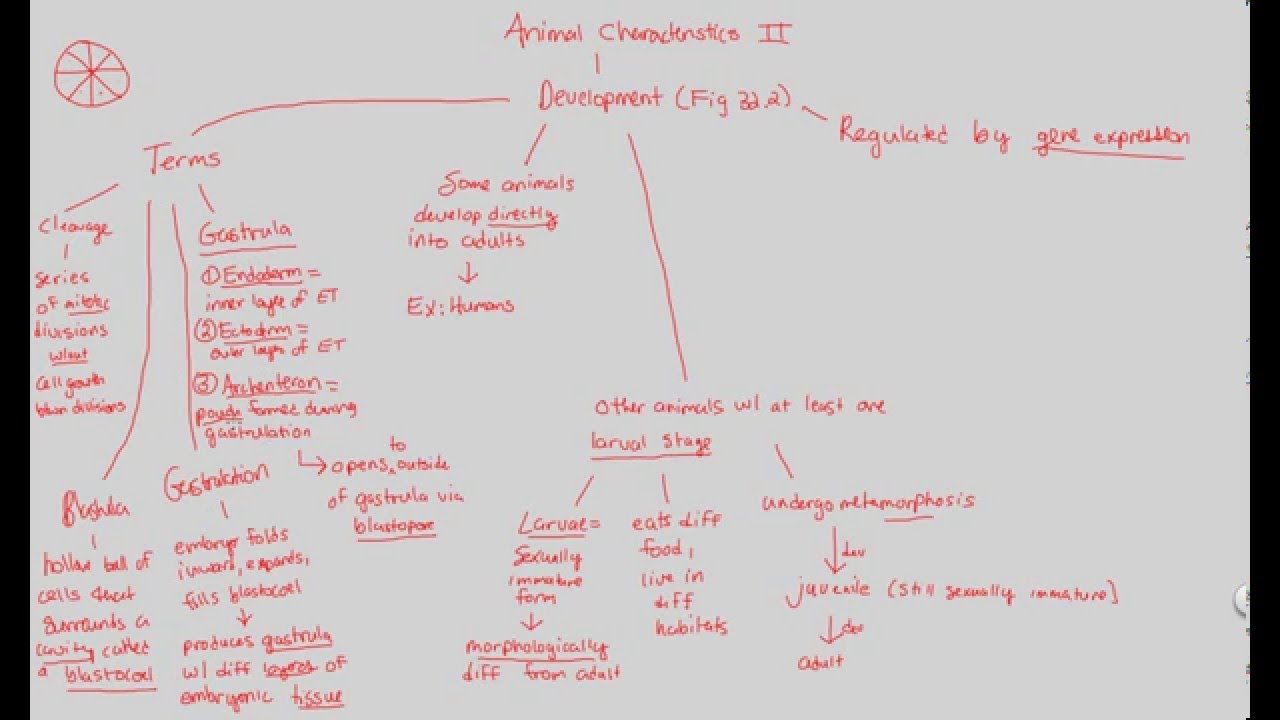 Animal Characteristics II
Development (Fig 32.2)
Regulated by gene expression
Terms
Cleavage
series
of mitotic
divisions
w/out
cell growth
b/twn divisions
Blastula
hollow ball of
cells that
surrounds a
cavity called
a blastocoel
Gastrulation
embryo folds
inward, expands,
fills blastocoel
produces gastrula
w/ diff layers of
embryonic tissue
Gastrula
① Endoderm =
inner layer of ET
② Ectoderm =
outer layer of ET
③ Archenteron =
pouch formed during
gastrulation
opens to outside
of gastrula via
blastopore
Some animals
develop directly
into adults
Ex: Humans
Other animals w/ at least one
larval stage
Larvae =
sexually
immature
form
morphologically
diff from adult
eats diff
food,
live in
diff
habitats
undergo metamorphosis
dev
juvenile (still sexually immature)
dev
adult